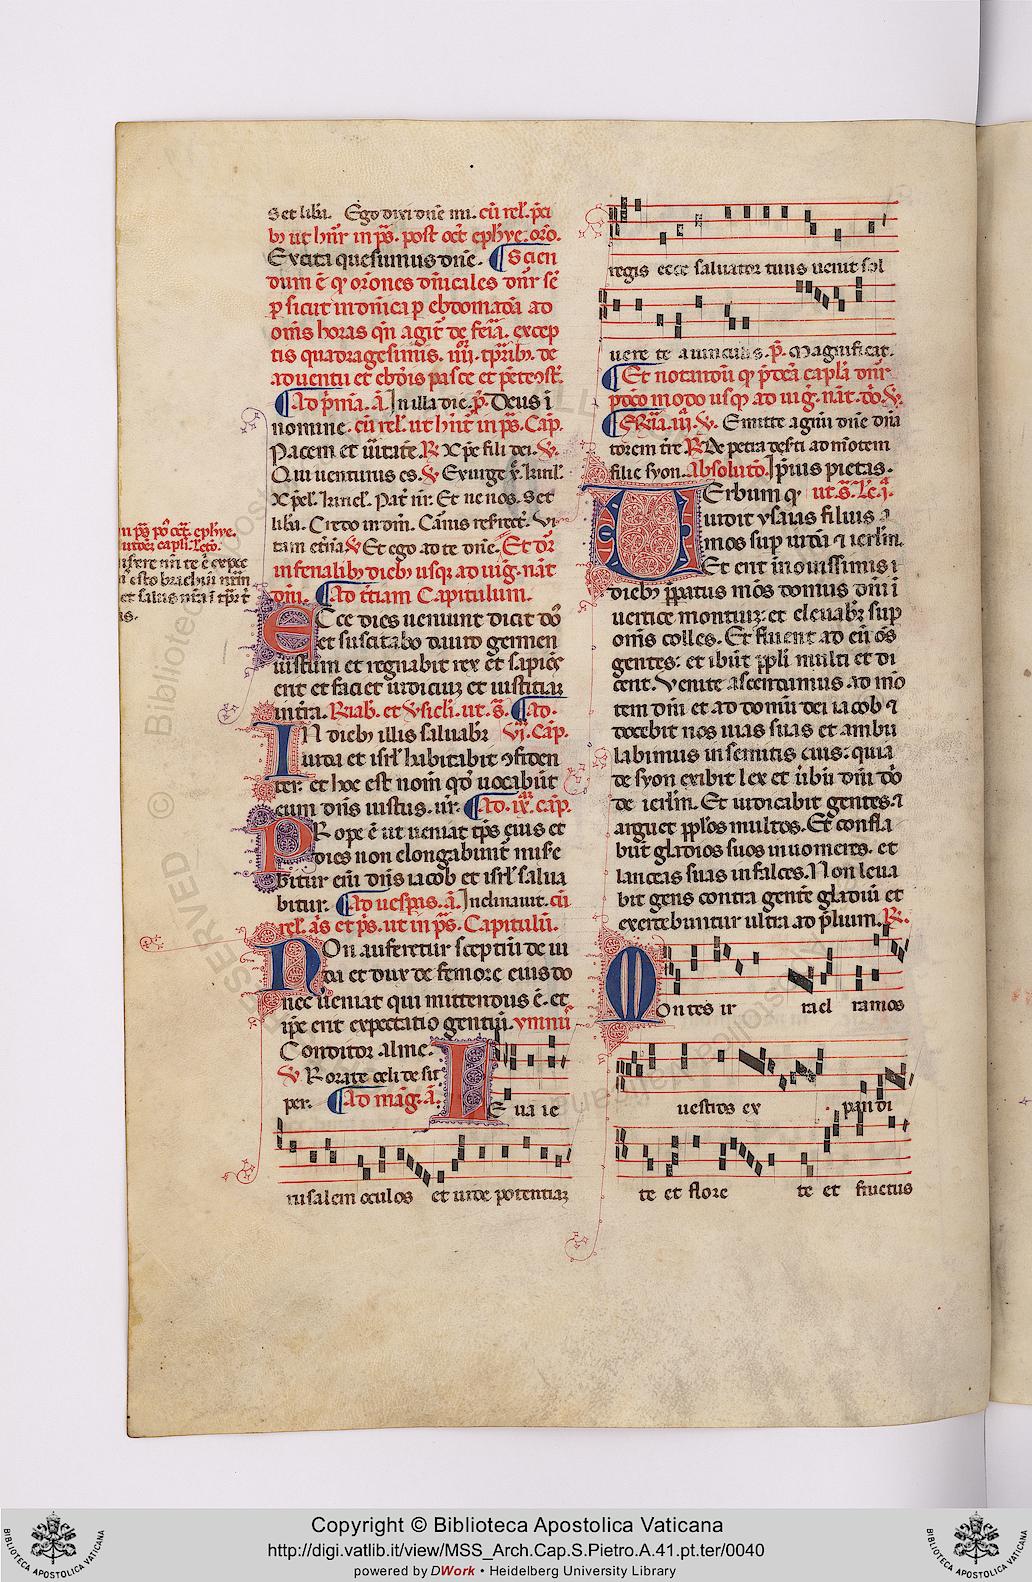 Set liba. Ego dixi dne mi. cu rel. pci
bȝ ut hnr in ps. post oct. ephye. oro.
Excita quesumus dne. Scien
dum e qȝ orones dnicales dnr sc
p sicut in dnica p ebdomada ad
oms horas qn agit de feia. excep
tis quadragesimis. iiii. tpribȝ. de
aduentu et ebdis pasce et petecost.
Ad pma. a. In illa die. p. Deus i
nomine. cu rel. ut hnt in ps. Cap.
Pacem et uitate. R Xpe fili dei. V.
Qui uenturus es. V Exurge x. kirl.
Xpel. kirıel. Pat nr. Et ne nos. Set
liba. Credo in dm. Carnis resirect. Vi
tam etna. V Et ego ad te dne. Et dr
in ferialibȝ diebȝ usqȝ ad uig. nat
dni. Ad tciam Capitulum.
Ecce dies ueniunt dicit do
et suscitabo dauid germen
iustum et regnabit rex et sapies
erit et faciet iudiciuȝ et iustitiaȝ
in tra. R iab. et V sicli. ut. s. Ad.
In diebȝ illis saluabr VI. Cap.
iuda et isrl habitabit cfiden
ter. et hoc est nom qd uocabut
eum dns iustus. nr. Ad. ix. cap.
Prope e ut ueniat tps eius et
dies non elongabunt mise
bitur eni dns iacob et isrl salua
bitur. Ad uespas. a. Inclinauit. cu
rel. as et ps. ut in ps. Capitulu.
Non auferetur sceptru de iu
da et dux de femore eius do
nec ueniat qui mittendus e. et
ipe erit expectatio gentiu. ymnu
Conditor alme.
V Rorate celi de su
per. Ad mag. a.
Leua ie
rusalem oculos et uide potentiaȝ
n ps po oct. ephye.
regis ecce saluator tuus uenit sol
uere te a uinculis. p. Magnificat.
Et notandu qȝ pdca capla dnr
pdco modo usqȝ ad uig. nat. do. V.
Feria. iii. V. Emitte agnu dne dna
torem tre. R De petra deserti ad motem
filie syon. Absoluto. Ipius pietas.
Verbum qȝ ut. s. Lc. i.
uidit ysaias filius a
mos sup iuda et ierlm.
Et erit in nouissimis i
diebȝ pparatus mos domus dni i
uertice montiuȝ. et eleuabr sup
omis colles. Et fluent ad eu os
gentes: et ibut ppli multi et di
cent. Venite ascendamus ad mo
tem dni et ad domu dei iacob et
docebit nos uias suas et ambu
labimus in semitis eius: quia
de syon exibit lex et ubu dni do
de ierlm. Et iudicabit gentes. et
arguet pplos multos. Et confla
but gladios suos in uomeres. et
lanceas suas in falces. Non leua
bit gens contra gente gladiu et
exercebuntur ultra ad plium. R.
Montes isrrael ramos
uestros ex pandi
te et flore te et fructus
Copyright © Biblioteca Apostolica Vaticana
http://digi.vatlib.it/view/MSS_Arch.Cap.S.Pietro.A.41.pt.ter/0040
powered by DWork • Heidelberg University Library